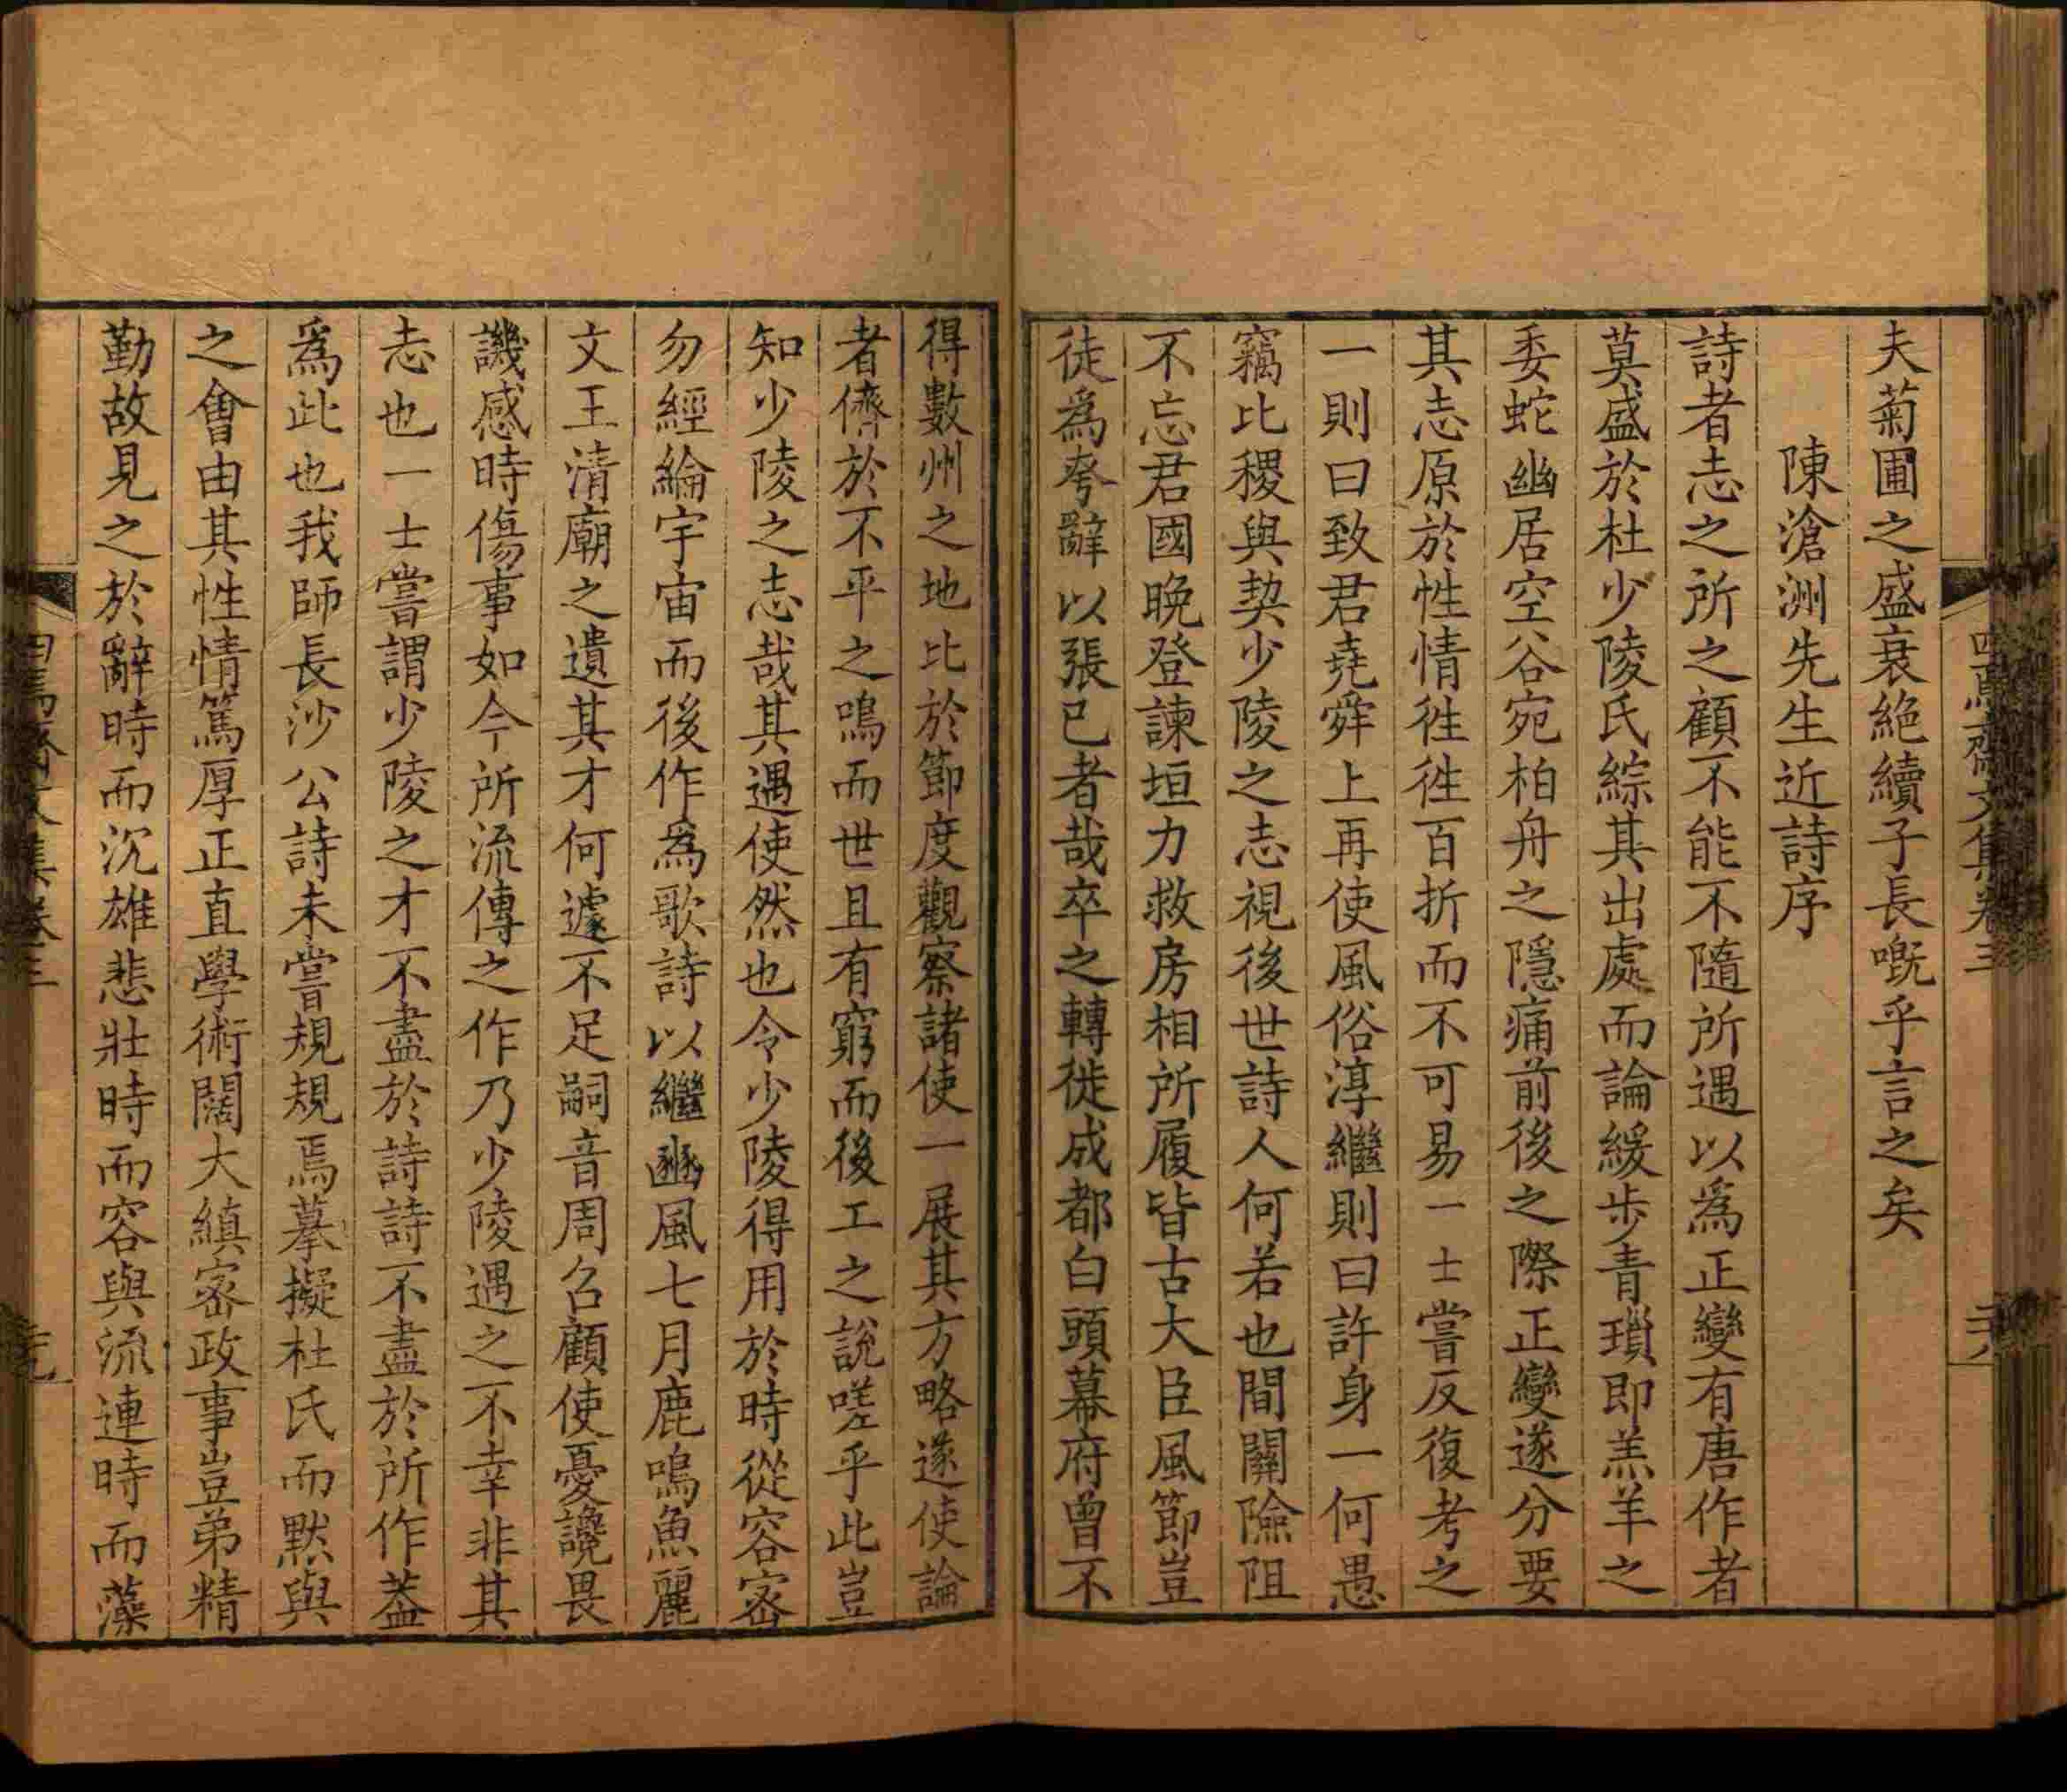 夫菊圃之盛衰絶續子長嘅乎言之矣
陳滄洲先生近詩序
詩者志之所之顧不能不隨所遇以為正變有唐作者
莫盛於杜少陵氏綜其出處而論緩步青瑣即羔羊之
委蛇幽居空谷宛柏舟之隱痛前後之際正變遂分要
其志原於性情徃徃百折而不可易一士嘗反復考之
一則曰致君堯舜上再使風俗淳繼則曰許身一何愚
竊比稷與契少陵之志視後世詩人何若也間關險阻
不忘君國晚登諫垣力救房相所履皆古大臣風節豈
徒為夸辭以張已者哉卒之轉徙成都白頭幕府曾不
得數州之地比於節度觀察諸使一展其方略遂使論
者儕於不平之鳴而世且有窮而後工之說嗟乎此豈
知少陵之志哉其遇使然也令少陵得用於時從容密
勿經綸宇宙而後作為歌詩以繼豳風七月鹿鳴魚麗
文王清廟之遺其才何遽不足嗣音周召顧使憂讒畏
譏感時傷事如今所流傳之作乃少陵遇之不幸非其
志也一士嘗謂少陵之才不盡於詩詩不盡於所作葢
為此也我師長沙公詩未嘗規規焉摹擬杜氏而默與
之會由其性情篤厚正直學術闊大縝密政事豈弟精
勤故見之於辭時而沉雄悲壯時而容與流連時而藻